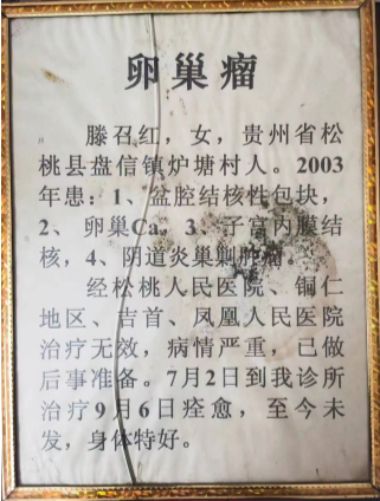 卵巢瘤
滕召红，女，贵州省松
桃县盘信镇炉塘村人。2003
年患：1、盆腔结核性包块，
2、卵巢Ca，3、子宫内膜结
核，4、阴道炎巢剿肿瘤。
经松桃人民医院、铜仁
地区、吉首、凤凰人民医院
治疗无效，病情严重，已做
后事准备。7月2日到我诊所
治疗9月6日痊愈，至今未
发，身体特好。